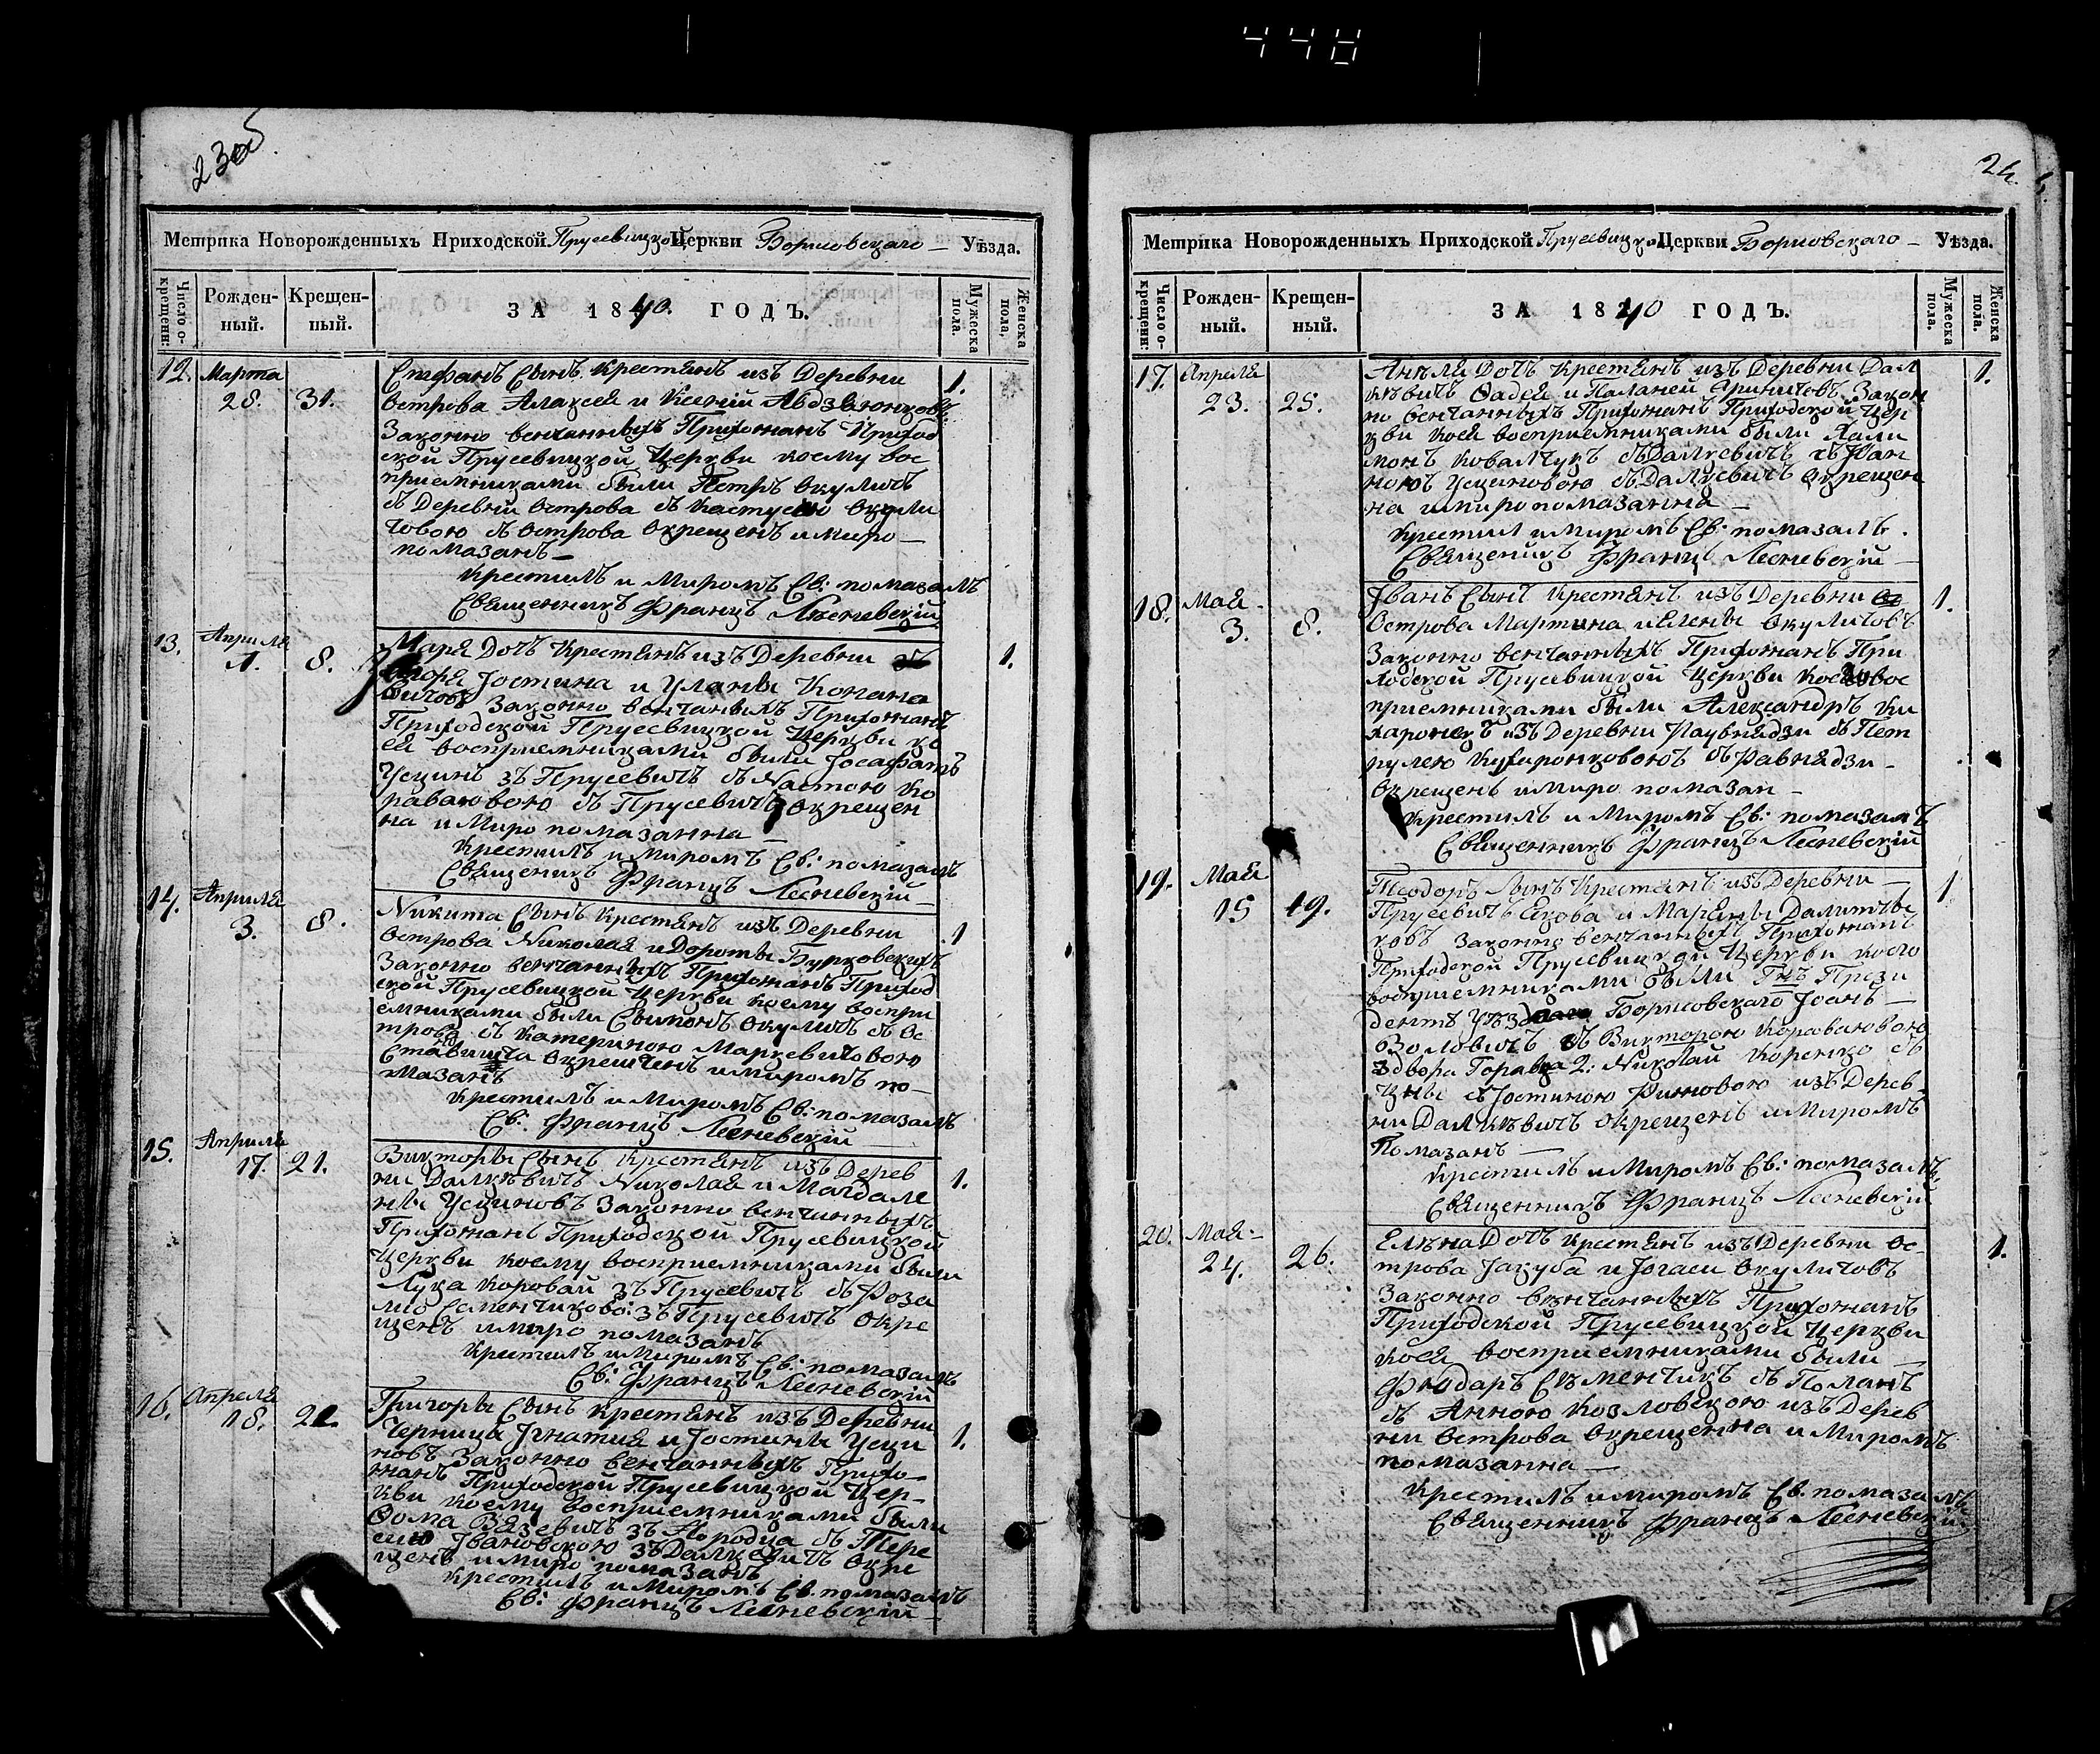 448
23об
Метрика Новорожденныхъ Приходской Прусевицкой Церкви Борисовскаго Уѣзда.
Число окрещен: Рожден-ный. Крещен-ный. ЗА 1840. ГОДЪ. Мужеска пола. Женска пола,
12. Марта 28. 31. 1.
Стефанъ Сынъ крестянъ изъ Деревни
Острова Алаксея и Ксеніи Авдзеюнковъ
Законно венчанныхъ Прихожанъ Приход
ской Прусевицкой Церкви коему вос
приемниками были Петръ Окуличъ
съ Деревни Острова съ Кастусею Окули
човою съ Острова Окрещенъ и миро
помазанъ
Крестилъ и Миромъ Св: помазалъ
Священникъ Францъ Лесневскій
13. Апреля 1. 8. 1.
Маря Дочъ Крестянъ изъ Деревни
Іостина и Уляны Конана
вичовъ Законно венчаныхъ Прихожанъ
Приходской Прусевицкой Церкви ко
ей восприемниками были Іосафатъ
Усцинъ зъ Прусевичъ съ Настою Ко
раваювою съ Прусевичъ Окрещен
на и Миро помазанна
Крестилъ и миромъ Св: помазалъ
Священникъ Францъ Лесневскій
14. Апреля 3. 8. 1
Никита Сынъ Крестянъ изъ Деревни
Острова Николая и Дороты Бурковскихъ
Законно венчанныхъ Прихожанъ Приход
ской Прусевицкой Церкви коему воспри
емниками были Сымонъ Окуличъ съ Ос
трова съ Катериною Марцевичовою
Ставища Окрещенъ и миромъ по
мазанъ
Крестилъ и Миромъ Св: помазалъ
Св: Францъ Лесневскій
15. Апреля 17. 21. 1.
Викторы Сынъ Крестянъ изъ Дерев
ни Далькѣвичъ Николая и Магдале
ны Усциновъ Законно венчинныхъ
Прихожанъ Приходской Прусевицкой
Церкви коему восприемниками были
Лука Коровай зъ Прусевичъ съ Роза
лію Семенчиково: зъ Прусевичъ Окре
щенъ и миро помазанъ
Крестилъ и Миромъ Св: помазалъ
Св: Францъ Лесневскій
16. Апреля 18. 21. 1.
Григоры Сынъ Крестянъ изъ Деревни
Черница Ігнатия и Іостины Усци
новъ Законно венчанныхъ Прихо
жанъ Приходской Прусевицкой Цер-
кви коему восприемниками были
Ѳома Вязевичъ зъ съ Тере
сию Івановскою зъ Далкевичъ Окре
щенъ и миро помазанъ
Крестилъ и Миромъ Св. помазалъ
Св: Францъ Лесневскій
24.
Метрика Новорожденныхъ Приходской Прусевицкой Церкви Борисовскаго Уѣзда.
Число окрещен: Рожден-ный. Крещен-ный. ЗА 1840 ГОДЪ. Мужеска пола. Женска пола.
17. Апреля 23. 25. 1.
Анеля Дочъ Крестянъ изъ Деревни Дал
кѣвичъ Ѳадея и Паланеи Законн
но венчанныхъ Прихожанъ Приходской Цер
кви коея восприемниками были
монъ Ковалчукъ съ Далкевичъ съ Ган
ною Усциновою съ Далкевичъ Окрещен
на и миро помазанна
Крестил и Миромъ Св: помазалъ.
Священикъ Францъ Лесневскій
18. Мая 3. 8. 1.
Іванъ Сынъ Крестянъ изъ Деревни
Острова Мартина и Елены Окуличовъ
Законно венчанныхъ Прихожанъ При
ходской Прусевицкой Церкви вос
приемниками были Александръ Ки
изъ Деревни съ Пет
рулею
Окрещенъ и Миро помазан
Крестилъ и Миромъ Св: помазалъ
Священникъ Францъ Лесневскій
19. Мая 15 19. 1
Теодоръ Сынъ Крестянъ изъ Деревни
Прусевичъ Якова и Маряны
ковъ Законно венчанныхъ Прихожанъ
Приходской Прусевицкой Церкви коего
восприемниками были Гнъ Прези
дентъ Борисовскаго Іоанъ
Воловичъ съ Викторою Короваювою
здвора 2: Николай Коренко съ
Цны съ Іостиною изъ Дерев-
ни Далкѣвичъ окрещенъ и Миромъ
Помазанъ
Крестилъ и Миромъ Св: помазалъ
Священникъ Францъ Лесневскій
20. Мая 24. 26. 1.
Елѣна Дочъ Крестянъ изъ Деревни Ос-
трова Іакуба и Югаси Окуличовъ
Законно венчанныхъ Прихожанъ
Приходской Прусевицкой Церкви
коея восприемниками были
Фіодаръ Сѣменчикъ съ Поланъ
съ Анною Козловскою изъ Дерев
ни Острова Окрещенна и Миромъ
помазанна
Крестилъ и миромъ Св. помазалъ
Священникъ Францъ Лесневскій